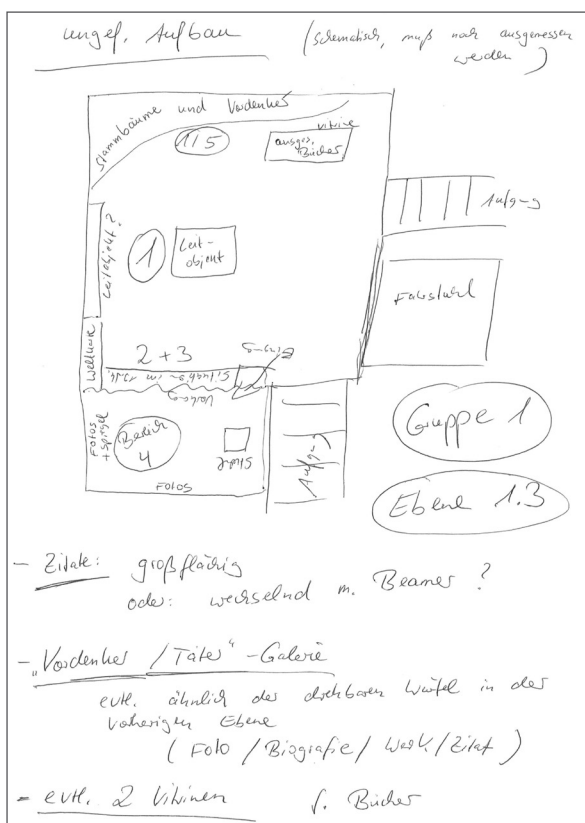 ungef. Aufbau
(schematisch, muß noch ausgemessen
werden)
Stammbäume und Vordenker
1/5
Vitrine
ausgew.
Bücher
Aufgang
Leitobjekt?
1
Leit-
objekt
Fahrstuhl
2 + 3
Eingang
Situation im 19. Jh.
Vorhang
Fotos
+ Spiegel
Bereich
4
Stuhl
Aufgang
Fotos
Gruppe 1
Ebene 1.3
- Zitate: großflächig
oder: wechselnd m. Beamer ?
- "Vordenker / Täter" - Galerie
evtl. ähnlich der drehbaren Würfel in der
vorherigen Ebene
( Foto / Biografie / Werk / Zitat )
- evtl. 2 Vitrinen f. Bücher